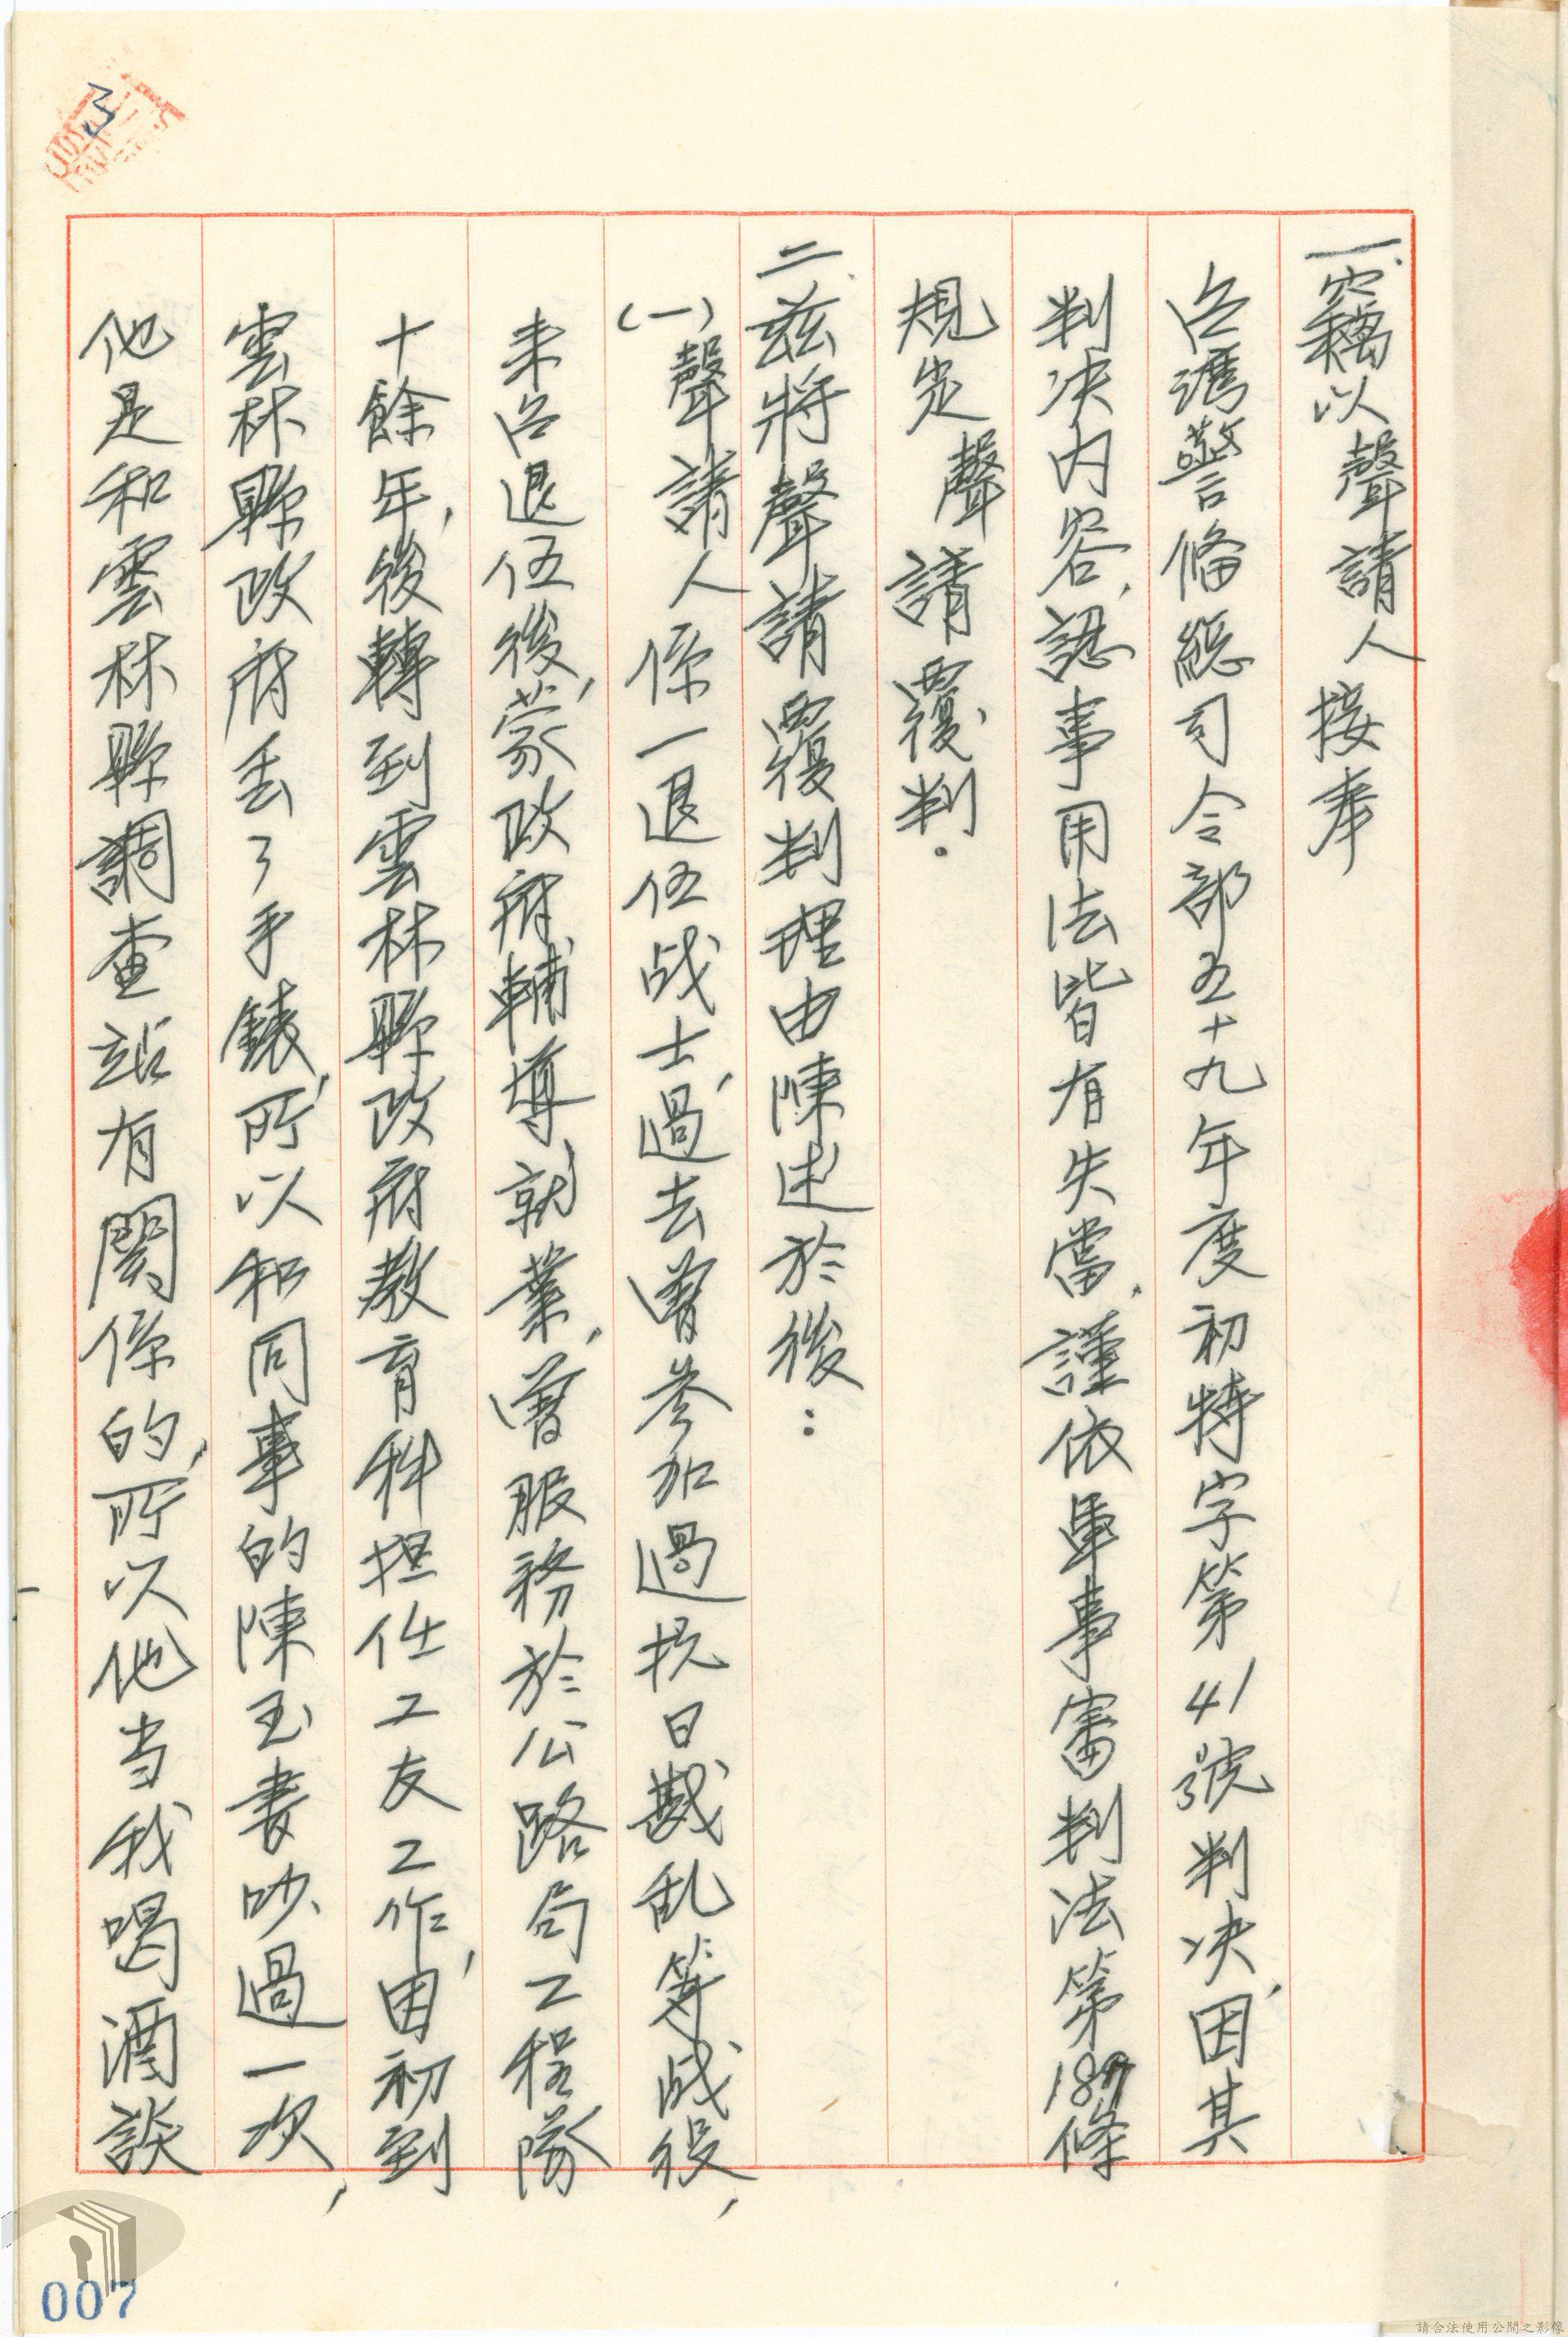 一、竊以聲請人接奉
台灣警俻總司令部五十九年度初特字第41號判决，因其
判决内容，認事用法皆有失當，謹依軍事審判法第187條
規定聲請覆判．
二、兹將聲請覆判理由陳述於後：
(一)聲請人係一退伍战士，過去曾参加過抗日戡乱等战役，
来台退伍後，蒙政府輔導就業，曾服務於公路局工程隊
十餘年，後轉到雲林縣政府教育科担任工友工作，因初到
雲林縣政府丢了手錶，所以和同事的陳玉妻吵過一次，
他是和雲林縣調查站有関係的，所以他当我喝酒談
007
請合法使用公開之影像